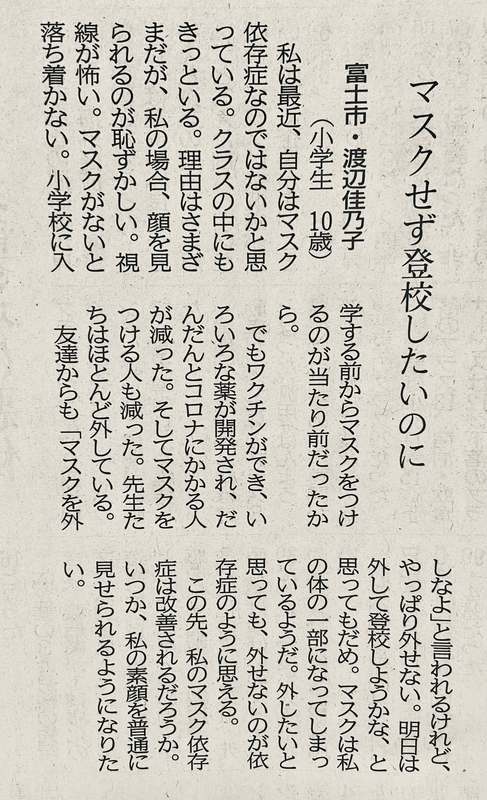 マスクせず登校したいのに
富士市・渡辺佳乃子
（小学生　10歳）
私は最近、自分はマスク
依存症なのではないかと思
っている。クラスの中にも
きっといる。理由はさまざ
まだが、私の場合、顔を見
られるのが恥ずかしい。視
線が怖い。マスクがないと
落ち着かない。小学校に入
学する前からマスクをつけ
るのが当たり前だったか
ら。
でもワクチンができ、い
ろいろな薬が開発され、だ
んだんとコロナにかかる人
が減った。そしてマスクを
つける人も減った。先生た
ちはほとんど外している。
友達からも「マスクを外
しなよ」と言われるけれど、
やっぱり外せない。明日は
外して登校しようかな、と
思ってもだめ。マスクは私
の体の一部になってしまっ
ているようだ。外したいと
思っても、外せないのが依
存症のように思える。
この先、私のマスク依存
症は改善されるだろうか。
いつか、私の素顔を普通に
見せられるようになりた
い。